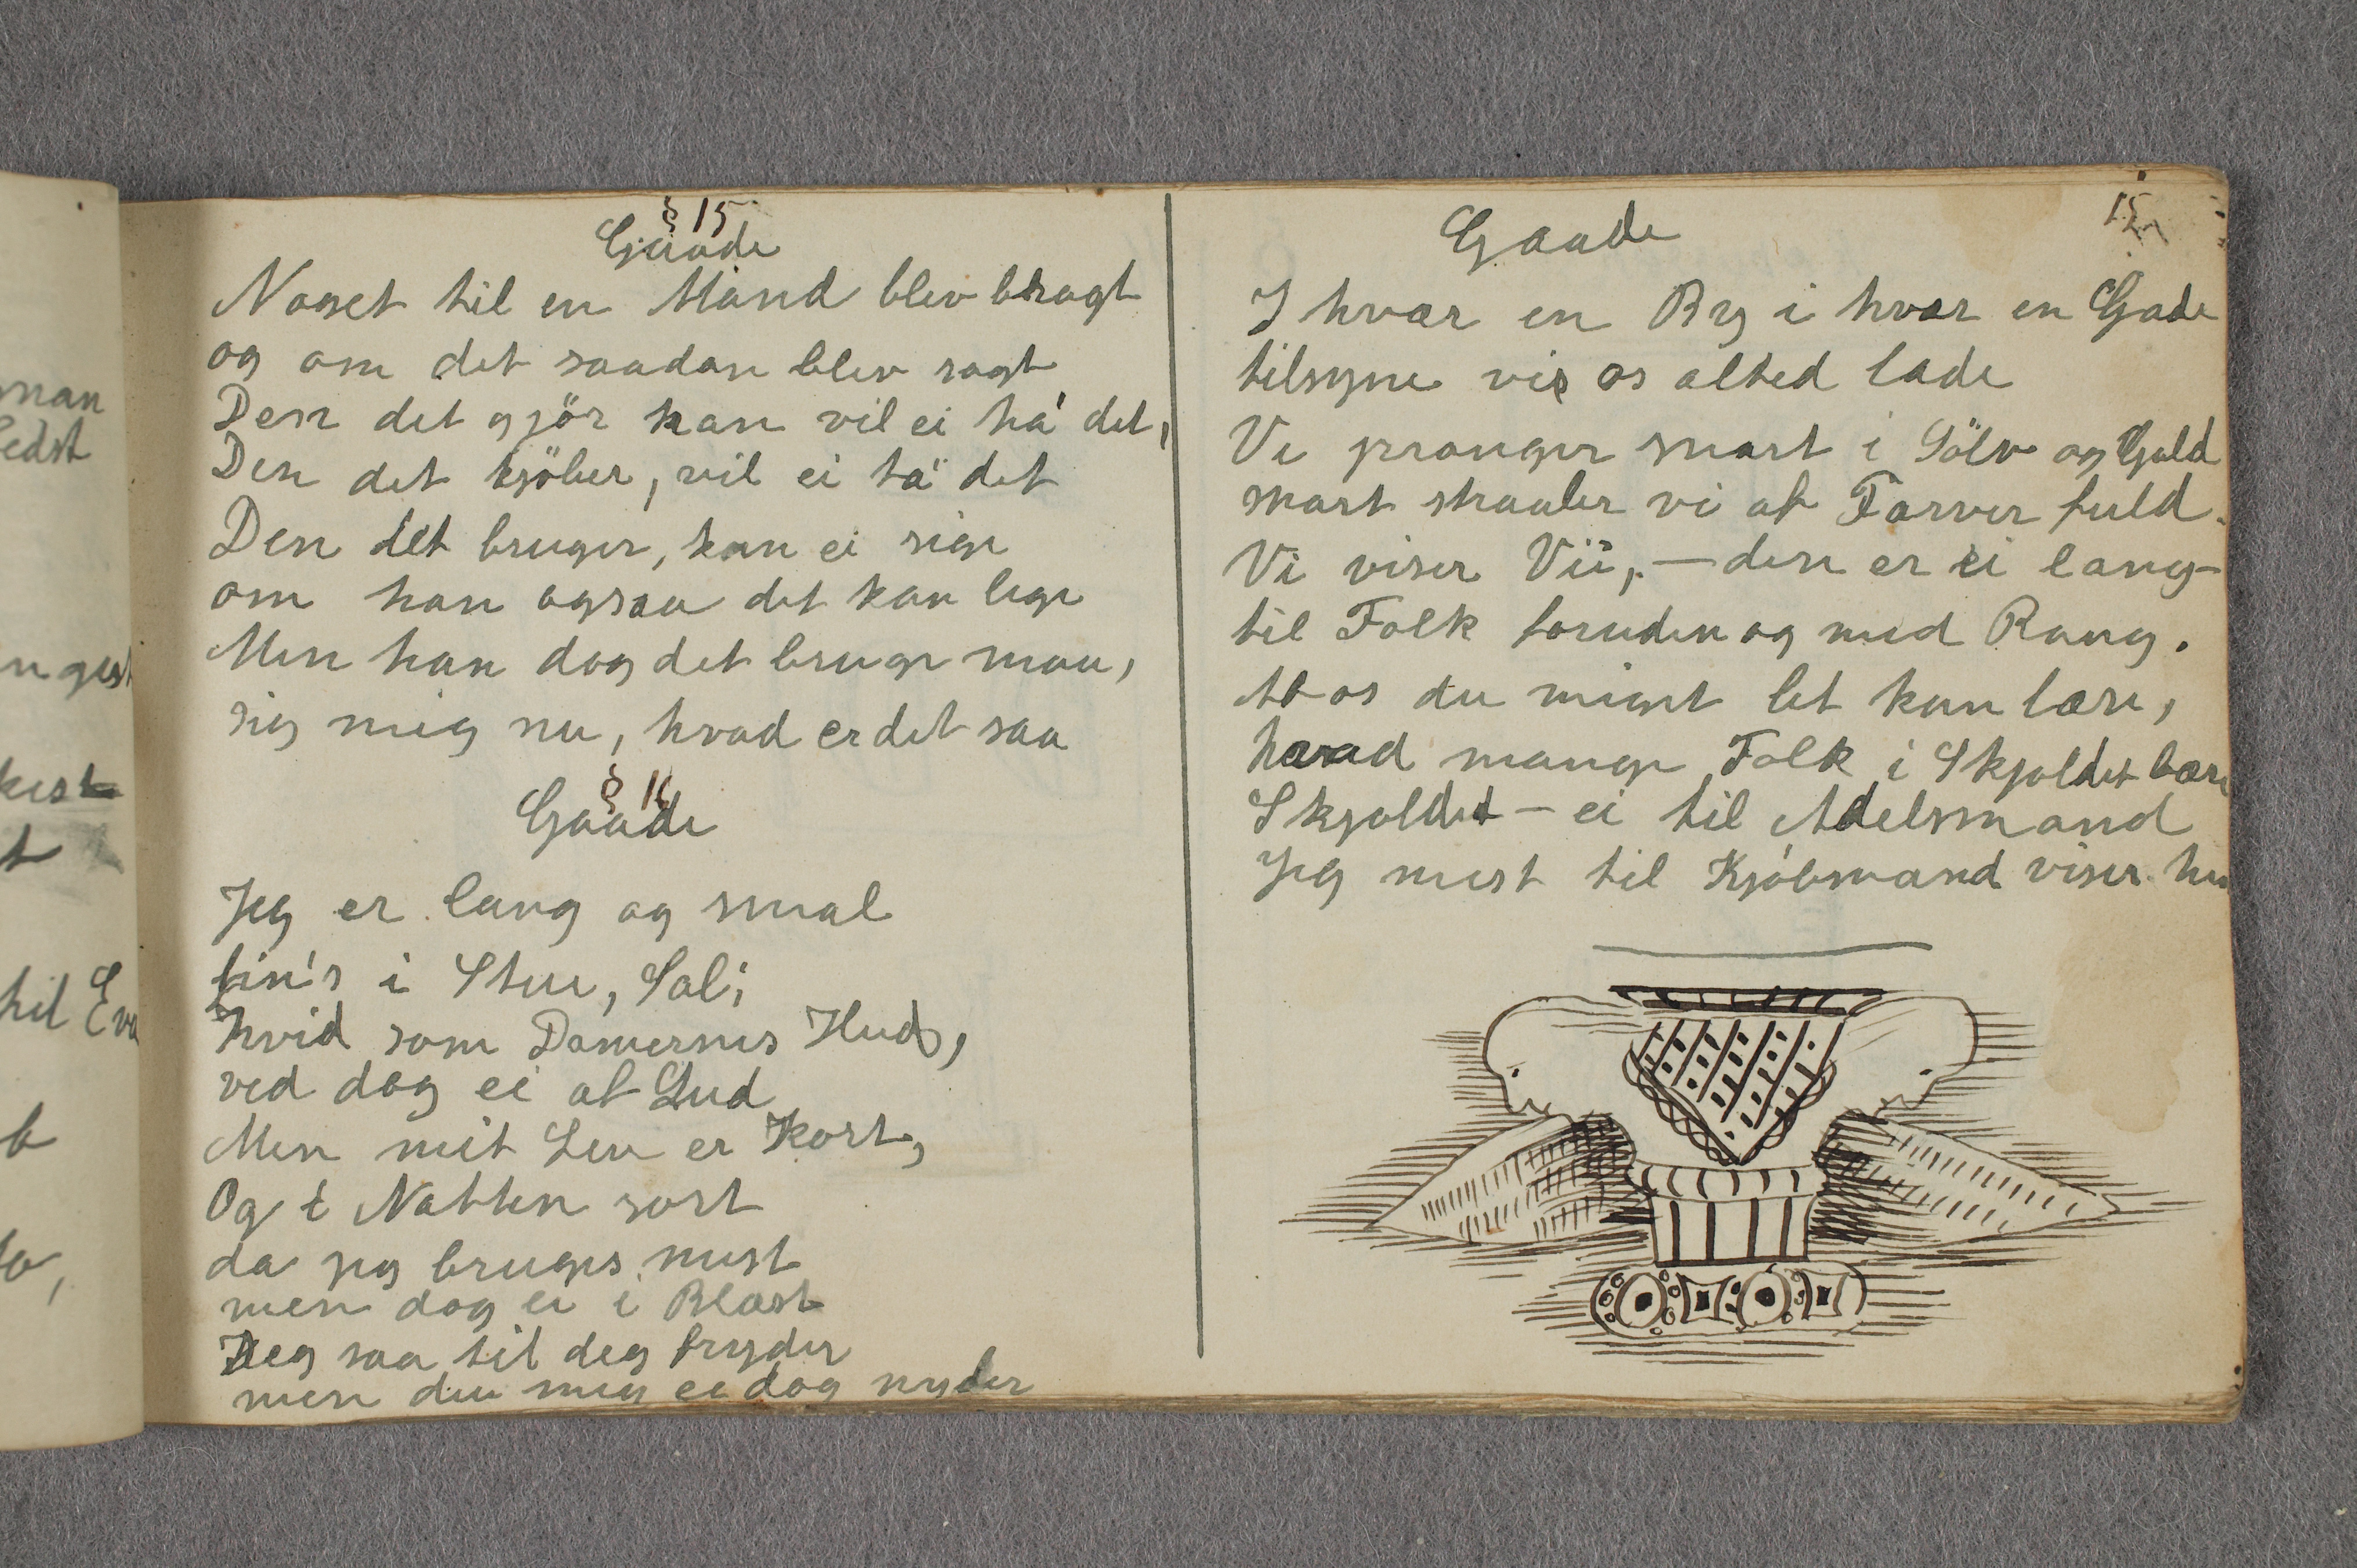 man
edst
n gest
kest
t
til Eva
b
to,
§ 15
Gaade
Noget til en Mand blev bragt
og om det saadan blev sagt
Den det gjör han vil ei ha' det,
Den det kjöber, vil ei ta' det
Den det bruger, kan ei sige
om han ogsaa det kan lige
Men han dog det bruge maa,
sig mig nu, hvad er det saa
§ 16
Gaade
Jeg er lang og smal
fin's i Stue, Sal;
hvid som Damernes Hud,
ved dog ei af Lud
Men mit Lev er kort,
Og i Natten sort
da jeg bruges mest
men dog ei i Blæst
Jeg saa til deg bryder
men du mig ei dog nyder
15
Gaade
I hvær en By i hvær en Gade
tilsyne vi os alted lade
Vi pranger snart i Sölv og Guld
snart straaler vi af Farver fuld.
Vi viser Vii, — den er ei lang —
til Folk foruden og med Rang.
Af os du meget let kan lære,
hvad mange Folk i Skjoldet bære
Skjoldet — ei til Adelsmand
Jeg mest til Kjöbmand viser hen